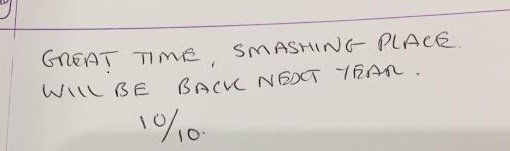 GREAT TIME, SMASHING PLACE.
WILL BE BACK NEXT YEAR.
10/10.